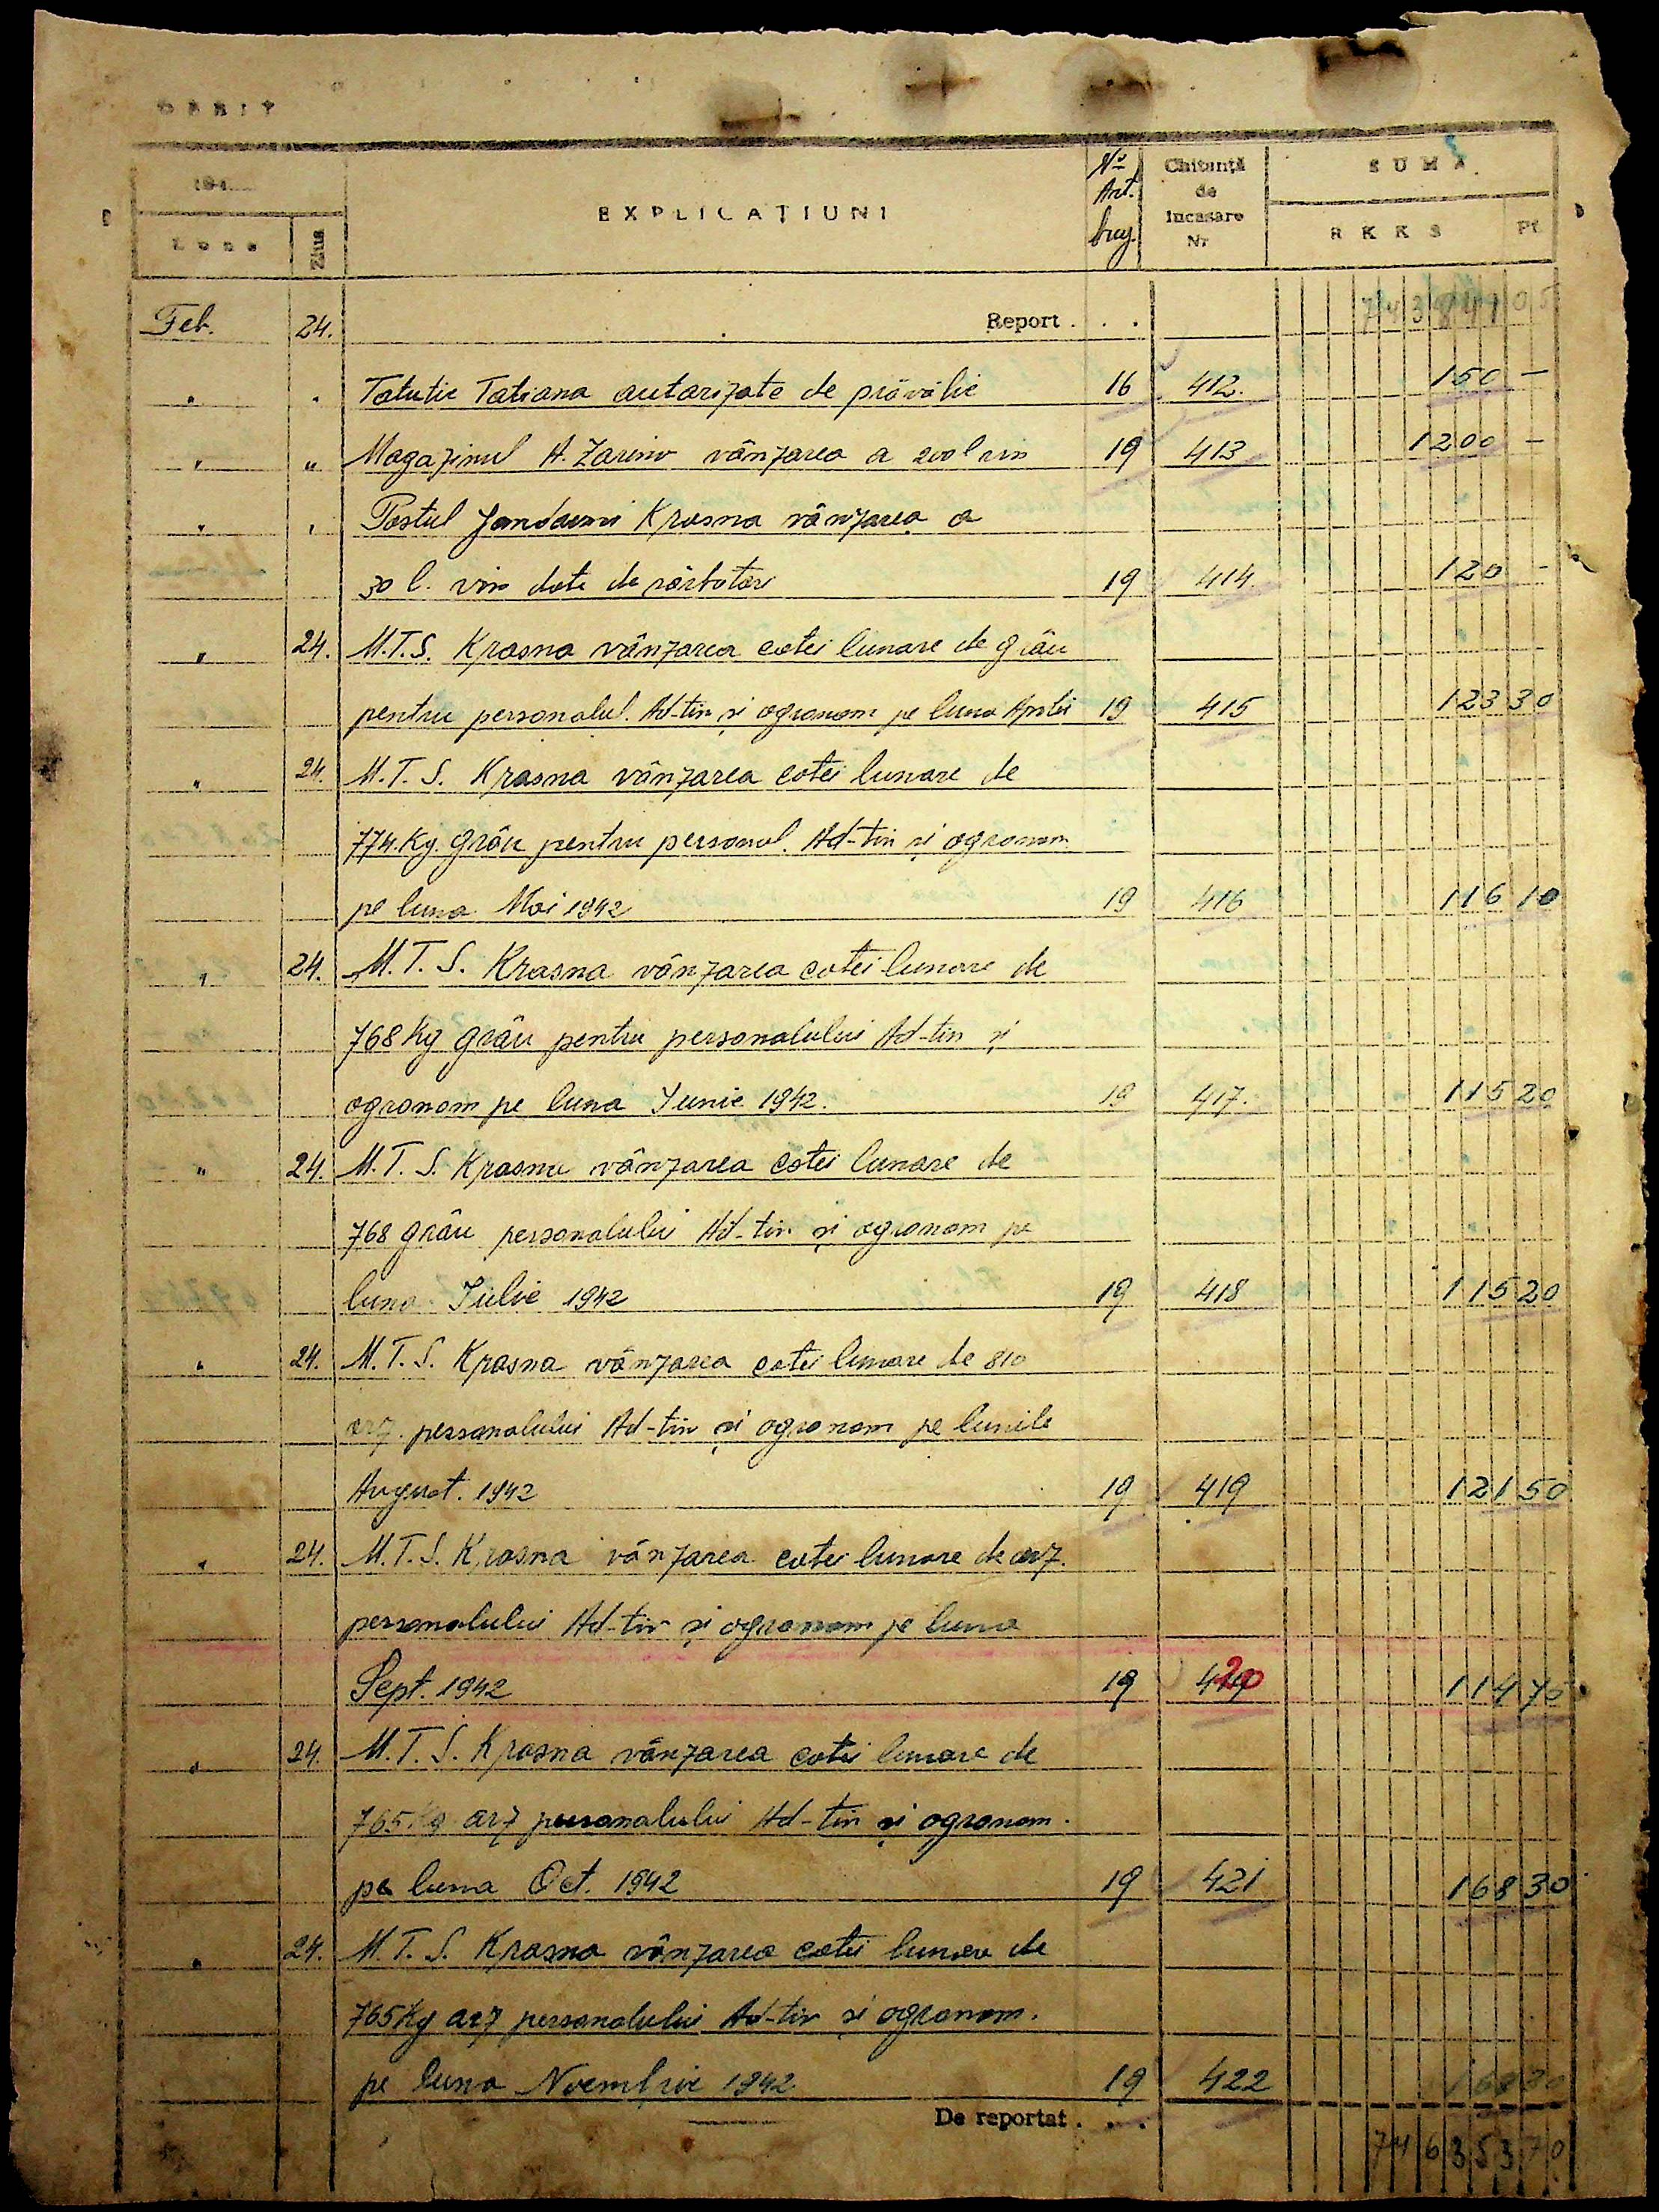 DEBIT
194
Luna
Ziua
EXPLICAȚIUNI
No Art. bug.
Chitanță de incasare Nr
SUMA
RKKS
Pf.
Feb. 24. Report . . . 743841 05
" " Tatutie Tatiana autorizate de prăvălie 16 412. 150 —
" " Magazinul A. Zarino vânzarea a 200 l vin 19 413 1200 —
" " Postul Jandarmi Krasna vânzarea a
30 l. vin date de sărbători 19 414 120 -
" 24. M.T.S. Krasna vânzarea cotei lunare de grâu
pentru personalul. Ad-tiv și agronom pe luna Aprilie 19 415 123 30
" 24. M.T.S. Krasna vânzarea cotei lunare de
774. Kg. grâu pentru personul. Ad-tiv și agronom
pe luna Mai 1942 19 416 116 10
" 24. M.T.S. Krasna vânzarea cotei lunare de
768 Kg grâu pentru personalului Ad-tiv și
agronom pe luna Iunie 1942. 19 417. 115 20
" 24. M.T.S. Krasna vânzarea cotei lunare de
768 grâu personalului Ad-tiv și agronom pe
luna Iulie 1942 19 418 115 20
" 24. M.T.S. Krasna vânzarea cotei lunare de 810
arz. personalului Ad-tiv și agronom pe lunile
August. 1942 19 419 121 50
" 24. M.T.S. Krasna vânzarea cotei lunare de arz.
personalului Ad-tiv și agronom pe luna
Sept. 1942 19 420 114 75
" 24. M.T.S. Krasna vânzarea cotei lunare de
765 Kg arz personalului Ad-tiv și agronom.
pe luna Oct. 1942 19 421 168 30
" 24. M.T.S. Krasna vânzarea cotei lunare de
765 Kg arz personalului Ad-tiv și agronom.
pe luna Noembrie 1942 19 422 168 30
De reportat . . . 746353 70